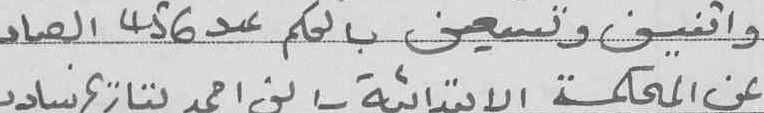 واثنين وتسعين بالحكم عدد 456 الصاد
عن المحكمة الابتدائية احمد بتاريخ سادس